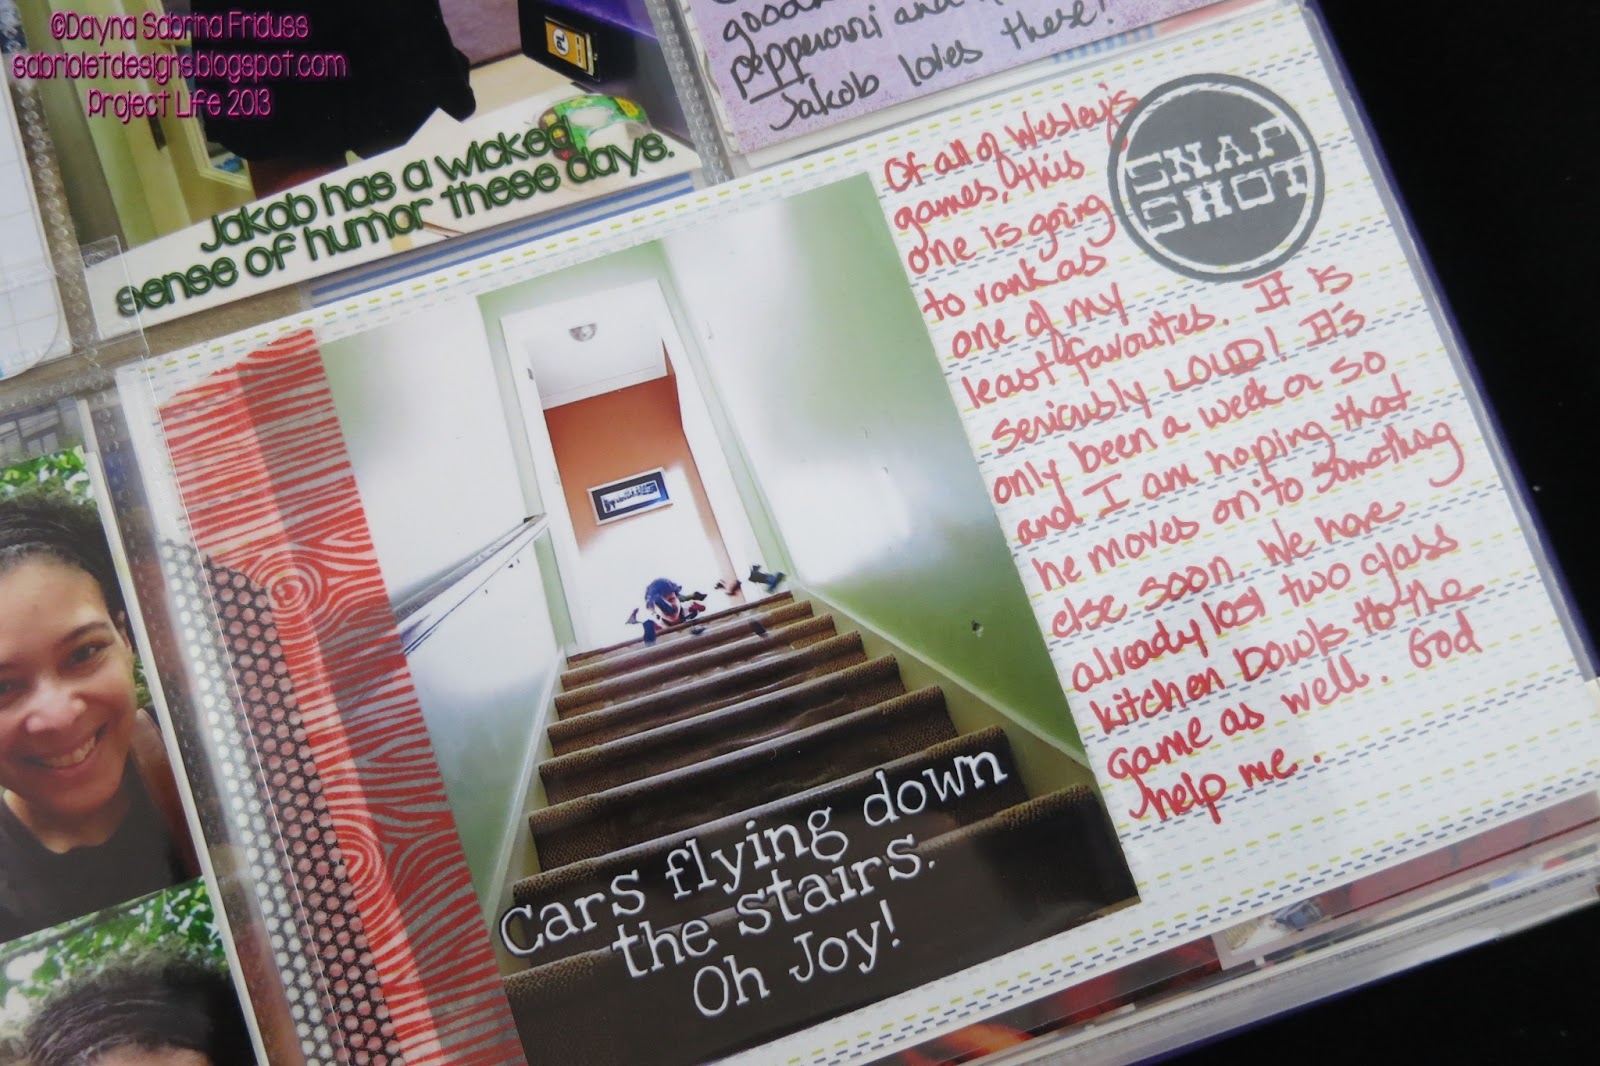 ©Dayna Sabrina Friduss
sabrioletdesigns.blogspot.com
Project Life 2013
PL
pepperoni and
Jakob loves these!
Jakob has a wicked
sense of humor these days.
SNAP
SHOT
Of all of Wesley's
games, this
one is going
to rank as
one of my
least favourites. It is
seriously LOUD! It's
only been a week or so
and I am hoping that
he moves on to something
else soon. We have
already lost two glass
kitchen bowls to the
game as well. God
help me.
Cars flying down
the stairs.
Oh Joy!